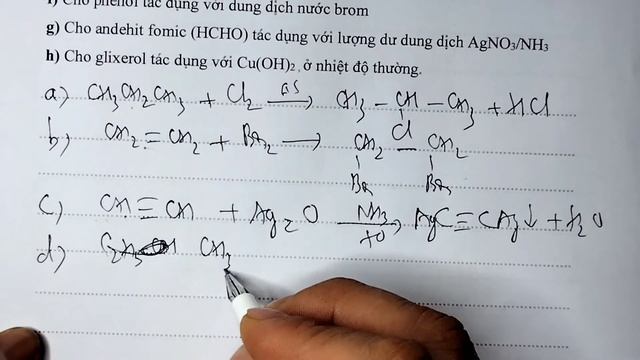 f) Cho phenol tác dụng với dung dịch nước brom
g) Cho andehit fomic (HCHO) tác dụng với lượng dư dung dịch AgNO₃/NH₃
h) Cho glixerol tác dụng với Cu(OH)₂ ở nhiệt độ thường.
a) CH₃CH₂CH₃ + Cl₂ as→ CH₃ – CH – CH₃ + HCl
Cl
b) CH₂ = CH₂ + Br₂ → CH₂ – CH₂
Br Br
c) CH ≡ CH + Ag₂O NH₃/t0→ AgC ≡ CAg↓ + H₂O
d) CH₃